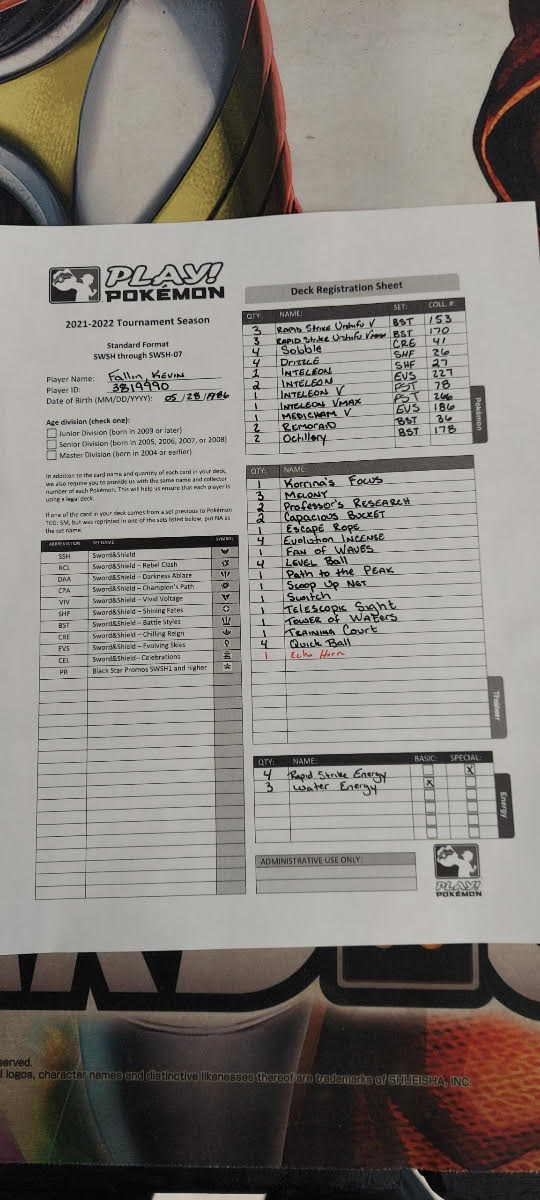 PLAY!
POKÉMON
2021-2022 Tournament Season
Standard Format
SWSH through SWSH-07
Player Name: Fallin, Kevin
Player ID: 3819990
Date of Birth (MM/DD/YYYY): 05 / 28 / 1986
Age division (check one):
Junior Division (born in 2009 or later)
Senior Division (born in 2005, 2006, 2007, or 2008)
Master Division (born in 2004 or earlier)
In addition to the card name and quantity of each card in your deck,
we also require you to provide us with the same name and collector
number of each Pokémon. This will help us ensure that each player is
using a legal deck.
If one of the card in your deck comes from a set previous to Pokémon
TCG: SM, but was reprinted in one of the sets listed below, put NA as
the set name.
ABBREVIATION SET NAME SYMBOL
SSH Sword&Shield
RCL Sword&Shield – Rebel Clash
DAA Sword&Shield – Darkness Ablaze
CPA Sword&Shield – Champion's Path
VIV Sword&Shield – Vivid Voltage
SHF Sword&Shield – Shining Fates
BST Sword&Shield – Battle Styles
CRE Sword&Shield – Chilling Reign
EVS Sword&Shield – Evolving Skies
CEL Sword&Shield – Celebrations
PR Black Star Promos SWSH1 and higher
Deck Registration Sheet
QTY: NAME: SET: COLL. #:
3 Rapid Strike Urshifu V BST 153
3 Rapid Strike Urshifu Vmax BST 170
4 Sobble CRE 41
4 Drizzle SHF 26
1 Inteleon SHF 27
2 Inteleon EVS 227
1 Inteleon V FST 78
1 Inteleon Vmax FST 266
1 Medicham V EVS 186
2 Remoraid BST 36
2 Octillery BST 178
Pokémon
QTY: NAME:
1 Korrina's Focus
3 Melony
2 Professor's Research
2 Capacious Bucket
1 Escape Rope
4 Evolution Incense
1 Fan of Waves
4 Level Ball
1 Path to the Peak
1 Scoop Up Net
1 Switch
1 Telescopic Sight
1 Tower of Waters
1 Training Court
4 Quick Ball
1 Echo Horn
Trainer
QTY: NAME: BASIC: SPECIAL:
4 Rapid Strike Energy X
3 Water Energy X
Energy
ADMINISTRATIVE USE ONLY:
PLAY!
POKÉMON
served.
l logos, character names and distinctive likenesses thereof are trademarks of SHUEISHA, INC.